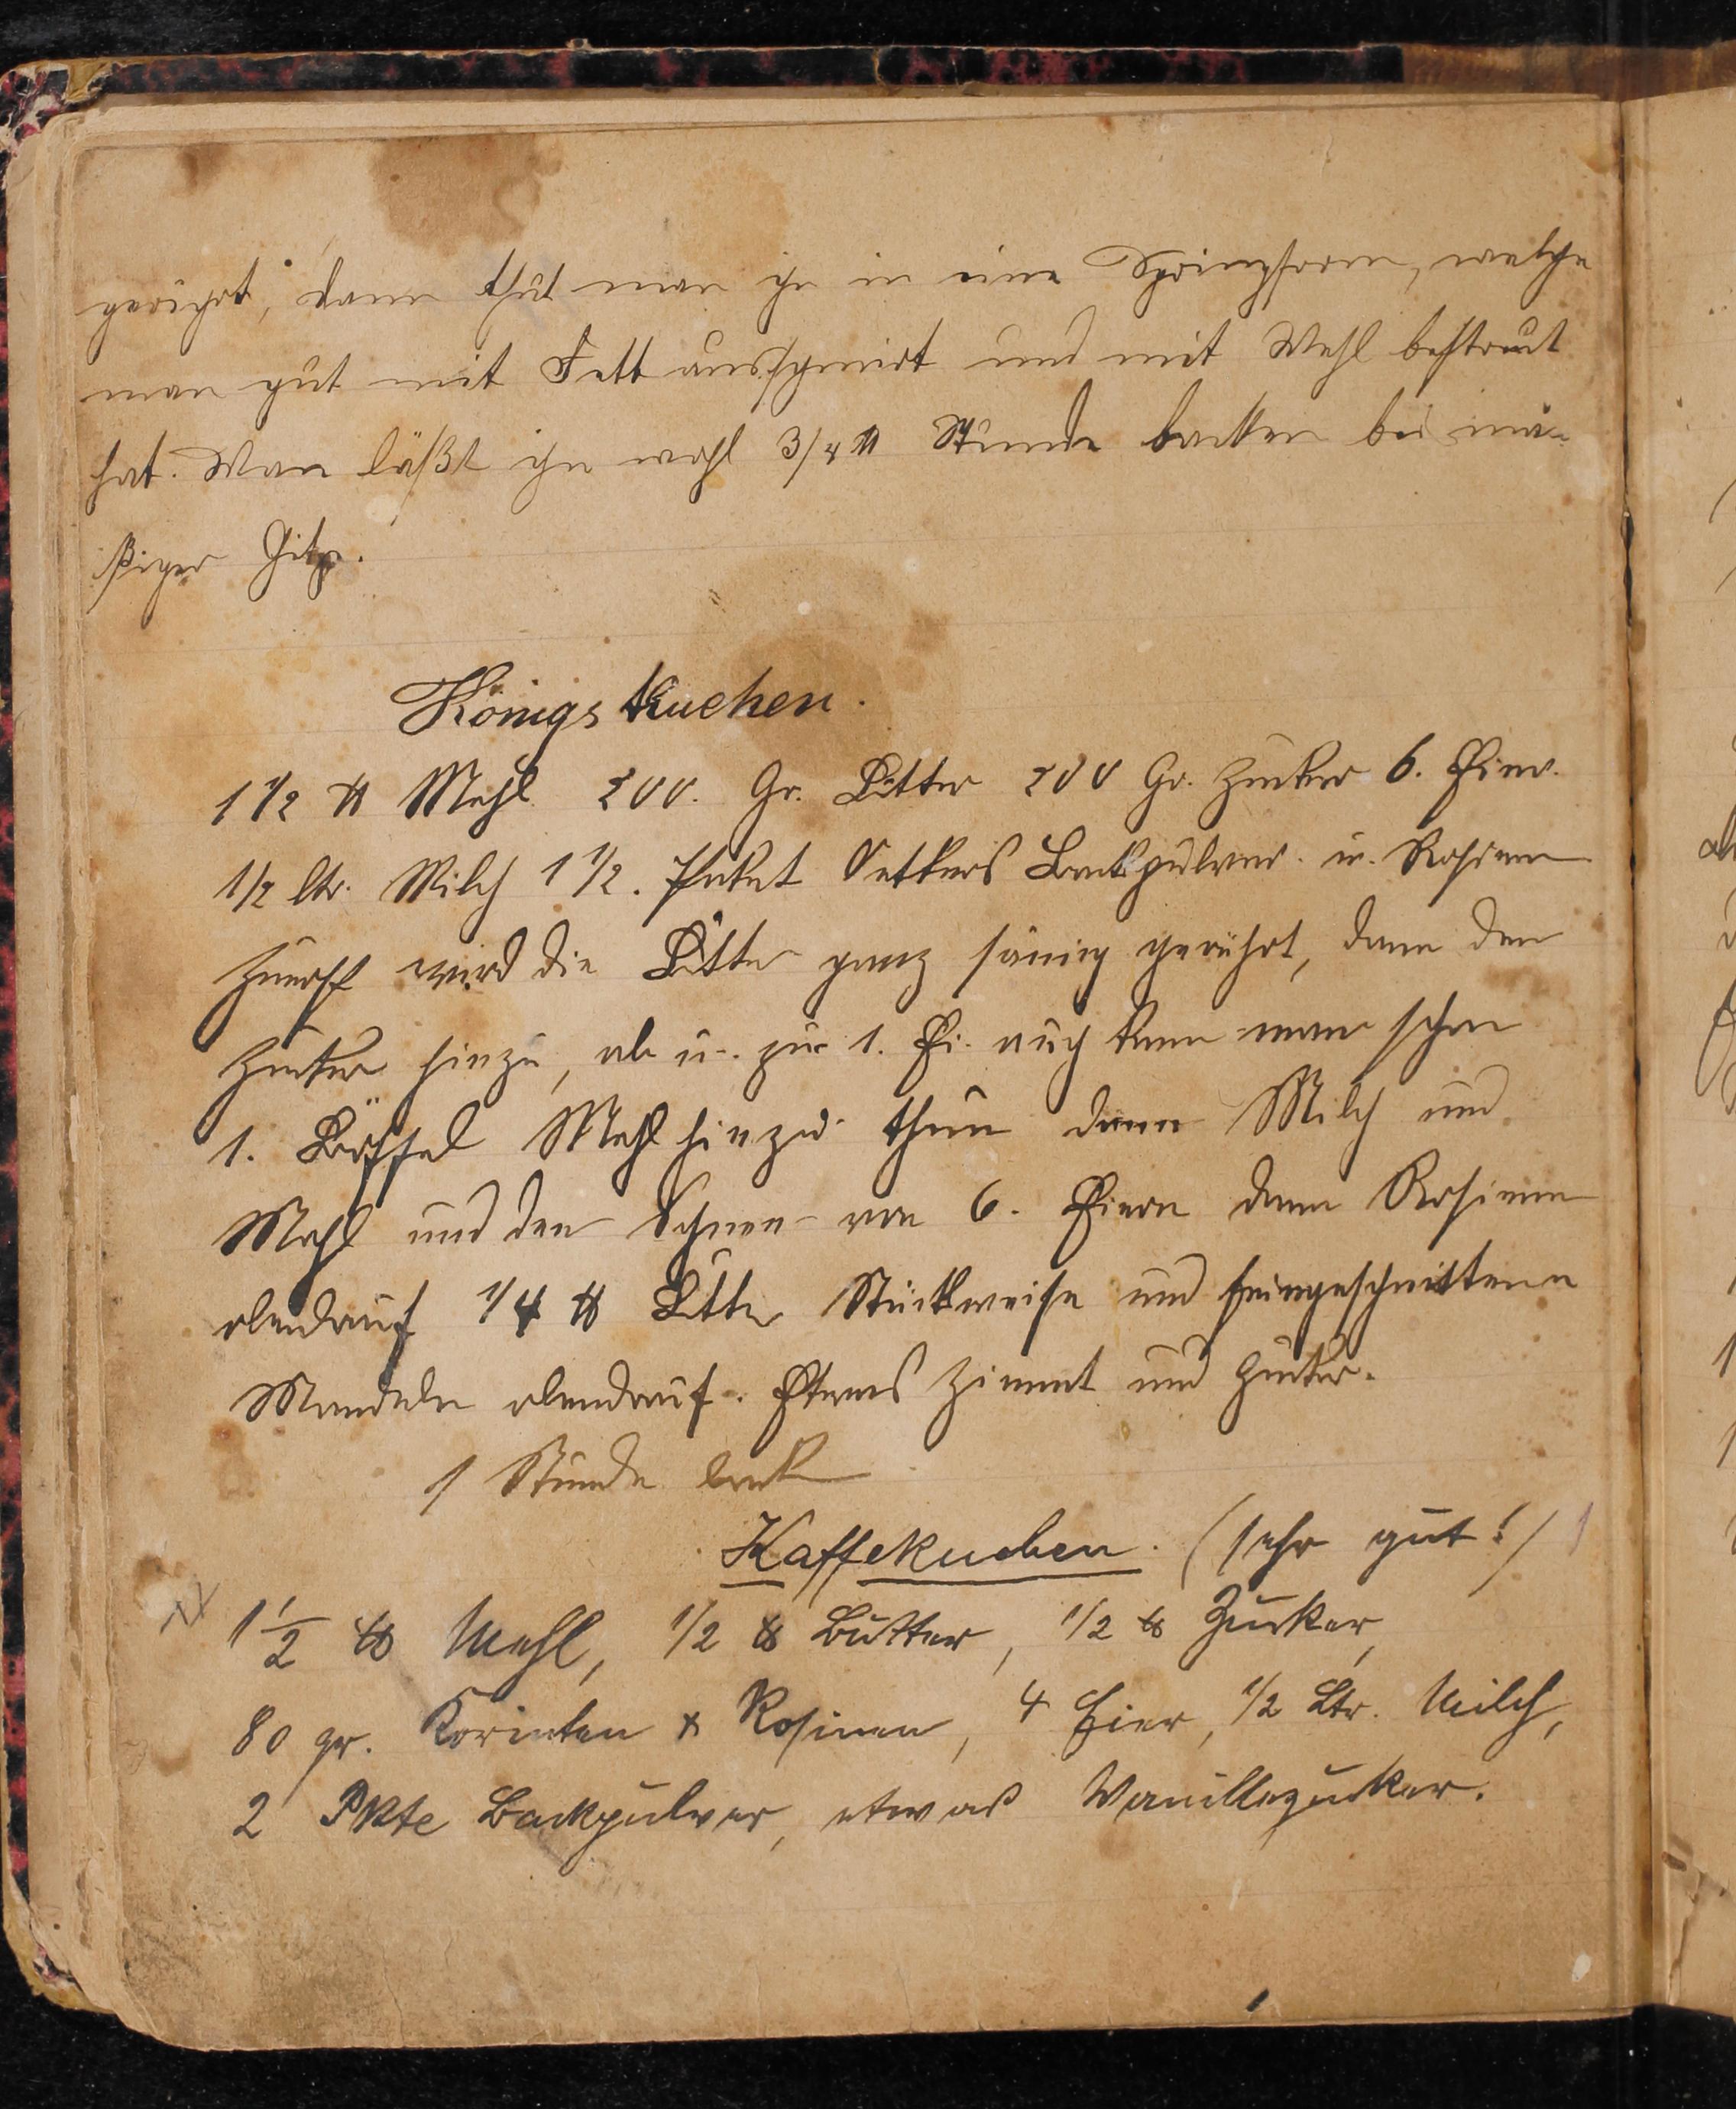 gerührt, dann thut man ihn in eine Springform, welche
man gut mit Fett ausschmirt und mit Mehl bestreut
hat. Man läßt ihn wohl 3/4 Stunde backen bei mä-
ßiger Hitze.
Königs Kuchen.
1 1/2 ℔ Mehl 200. Gr. Butter 200 Gr. Zucker 6. Eier.
1/2 ltr. Milch 1 1/2. Paket Oetkers Backpulver. u. Rosinen
Zuerst wird die Butter ganz sämig gerührt, dann den
Zucker hinzu, ab u. zu 1. Ei. auch kann man schon
1. Löffel Mehl hinzu thun dann Milch und
Mehl und den Schnee von 6. Eiern dann Rosinen
obendrauf 1/4 ℔ Butter Stückweise und feingeschnittene
Mandeln obendrauf. Etwas Zimmt und Zucker.
1 Stunde backen
Kaffekuchen. (sehr gut!)
1 1/2 ℔ Mehl, 1/2 ℔ Butter, 1/2 ℔ Zucker,
80 gr. Korinten & Rosinen, 4 Eier, 1/2 Ltr. Milch,
2 Pkte Backpulver, etwas Vanillezucker.